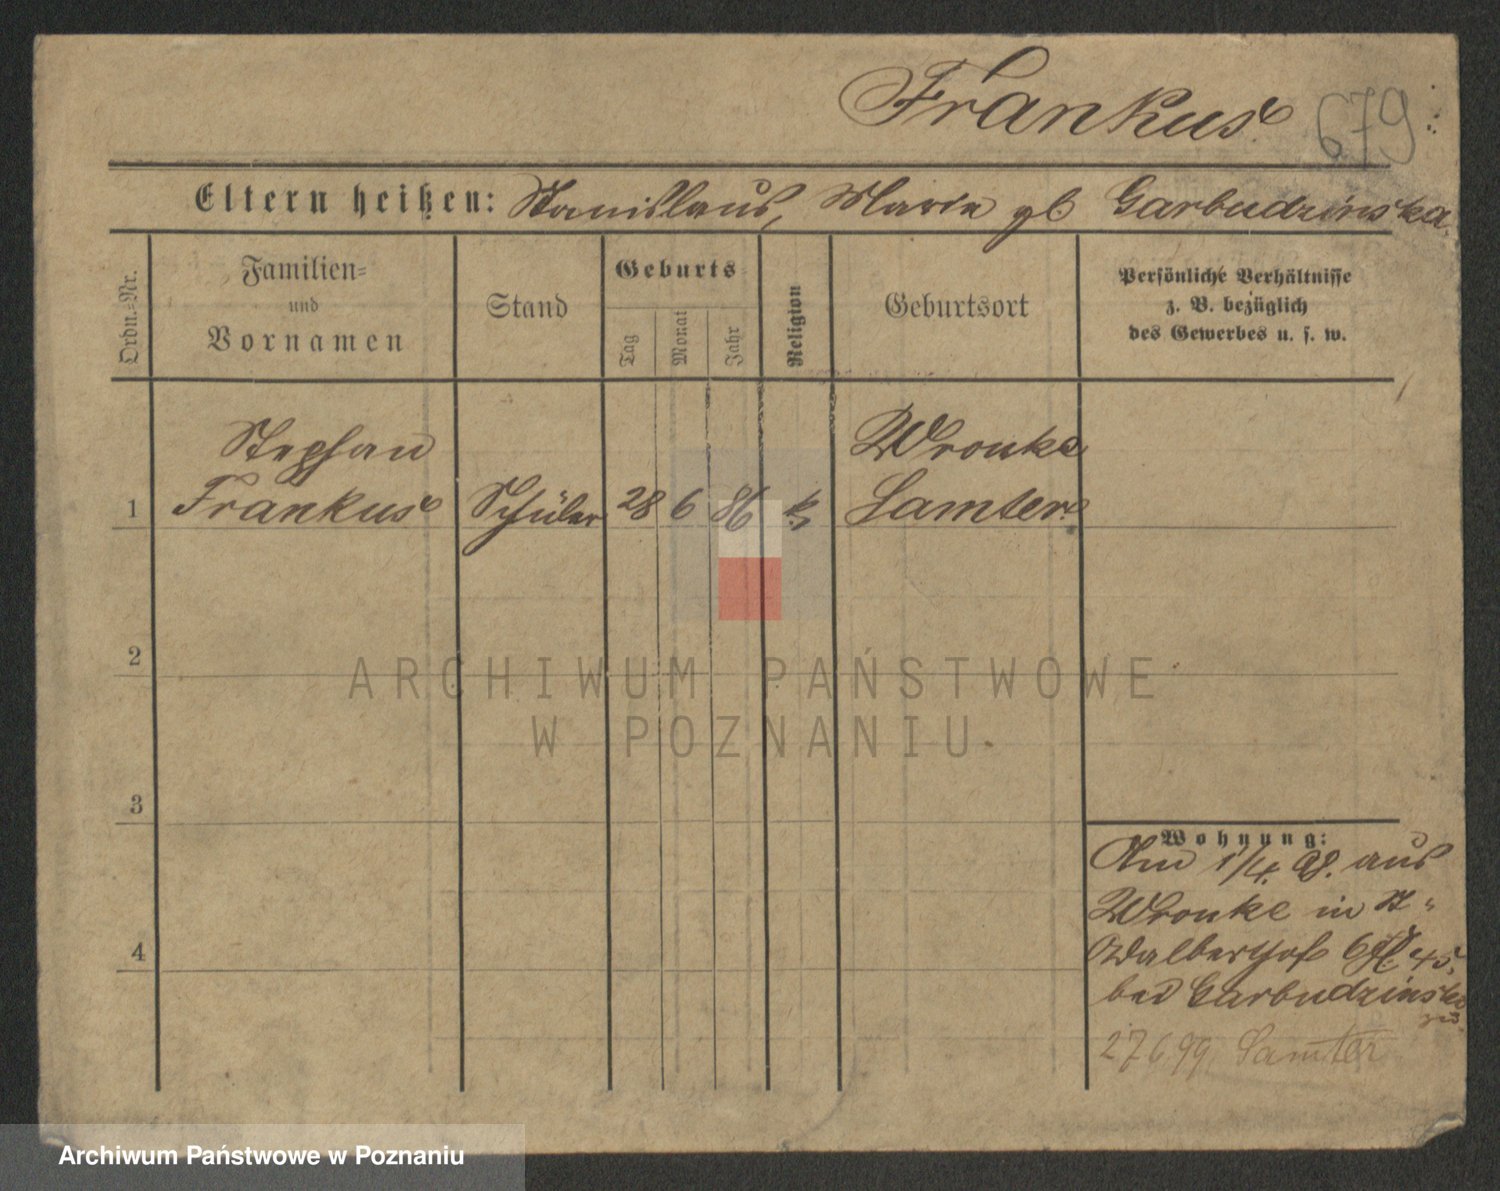 Frankus 679
Eltern heißen: Stanislaus, Maria gb Garbudzinska.
Ordn.-Nr.
Familien-
und
Vornamen
Stand
Geburts-
Tag
Monat
Jahr
Religion
Geburtsort
Persönliche Verhältnisse
z. B. bezüglich
des Gewerbes u. s. w.
Stephan
Wronke
1 Frankus Schüler 28 6 86 k Samter.
2
ARCHIWUM PAŃSTWOWE
W POZNANIU
3
Wohnung:
Am 1/4. 98. aus
Wronke in
4
45.
bei Garbudzinska
27 6 99 Samter
Archiwum Państwowe w Poznaniu